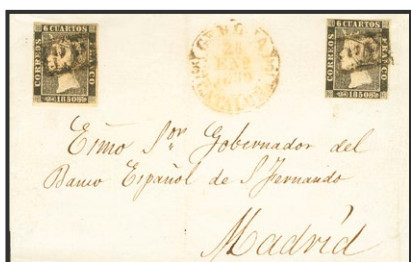 6 CUARTOS
CORREOS
FRANCO
1850
6 CUARTOS
CORREOS
FRANCO
1850
GERONA
26
CATALUÑA
Exmo Sor Gobernador del
Banco Español de S Fernando
Madrid